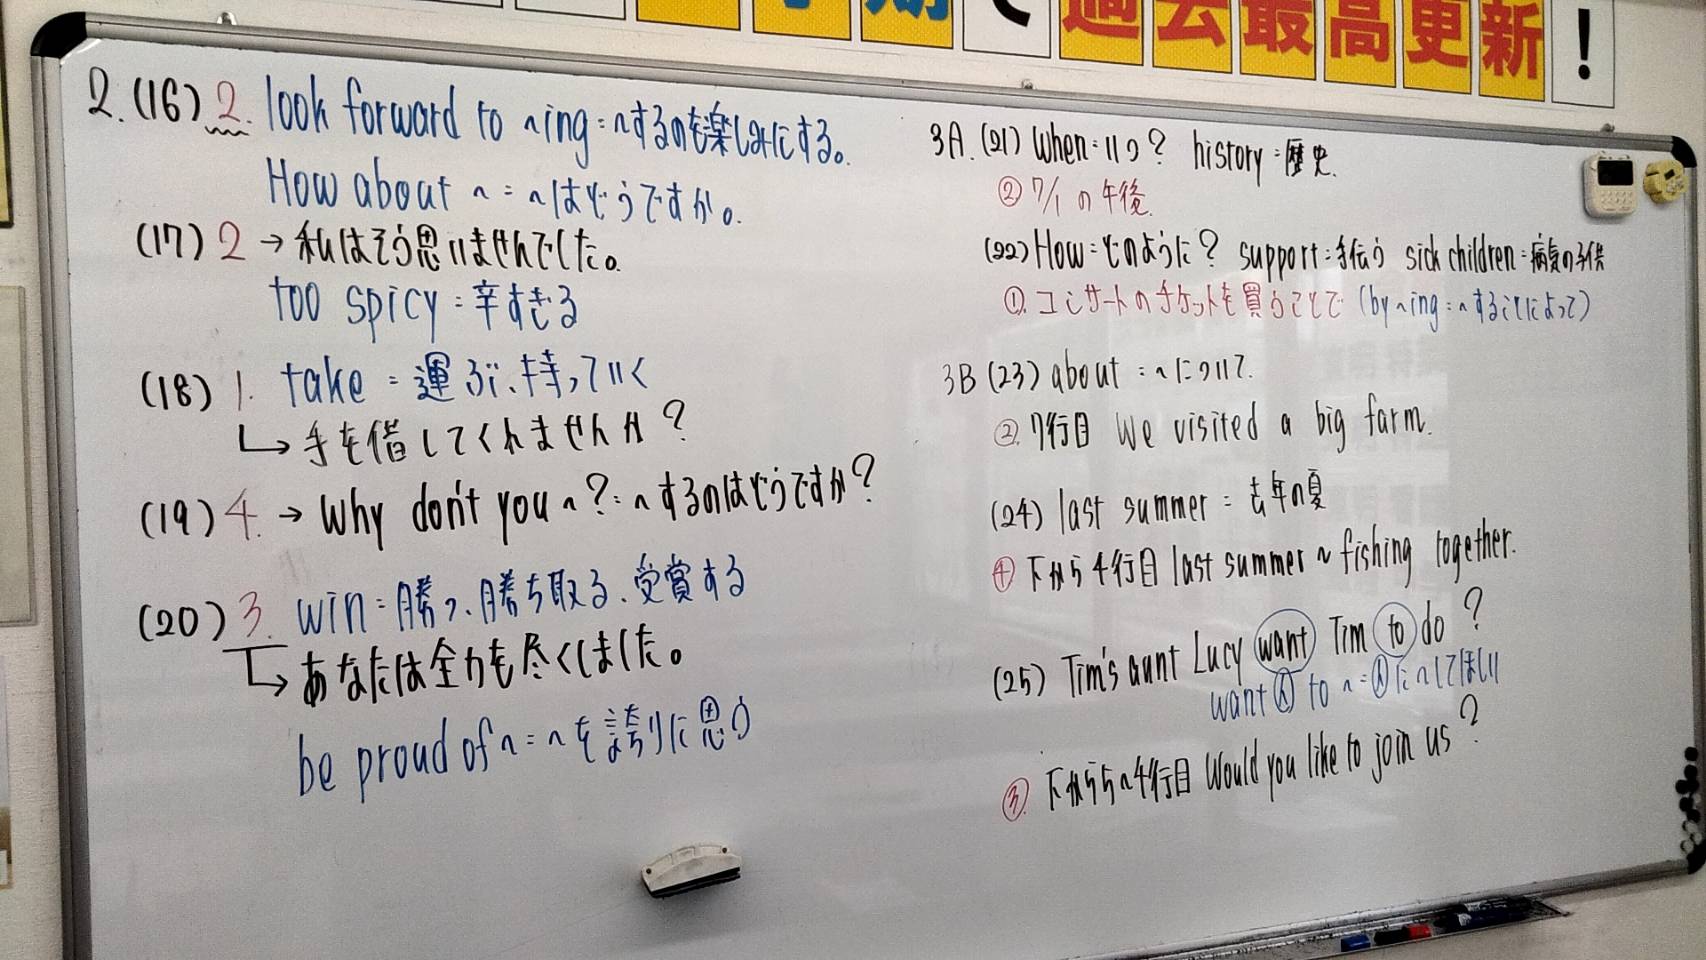 過去最高更新!
2.(16) 2. look forward to ~ing = ~するのを楽しみにする。
How about ~ = ~はどうですか。
(17) 2 → 私はそう思いませんでした。
too spicy = 辛すぎる
(18) 1. take = 運ぶ、持っていく
↳ 手を借してくれませんか?
(19) 4. → Why don't you ~? = ~するのはどうですか?
(20) 3. win = 勝つ、勝ち取る、受賞する
↳ あなたは全力を尽くしました。
be proud of ~ = ~を誇りに思う
3A. (21) When = いつ? history = 歴史.
② 7/1 の午後.
(22) How = どのように? support = 手伝う sick children = 病気の子供
①. コンサートのチケットを買うことで (by ~ing = ~することによって)
3B (23) about = ~について.
②. 7行目 We visited a big farm.
(24) last summer = 去年の夏
④ 下から4行目 last summer ~ fishing together.
(25) Tim's aunt Lucy want Tim to do?
want 人 to ~ = 人に~してほしい
③. 下から5~4行目 Would you like to join us?